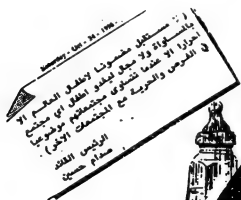 Saturday - Oct - 24 - 1998 -
( .. مستقبل مضمونا لاطفال العالم الا
بالمساواة ولا مجال ليغدو اطفال اي مجتمع
احرارا الا عندما تتساوى مجتمعاتهم موضوعيا
في الفرص والحرية مع المجتمعات الاخرى) .
الرئيس القائد
صدام حسين